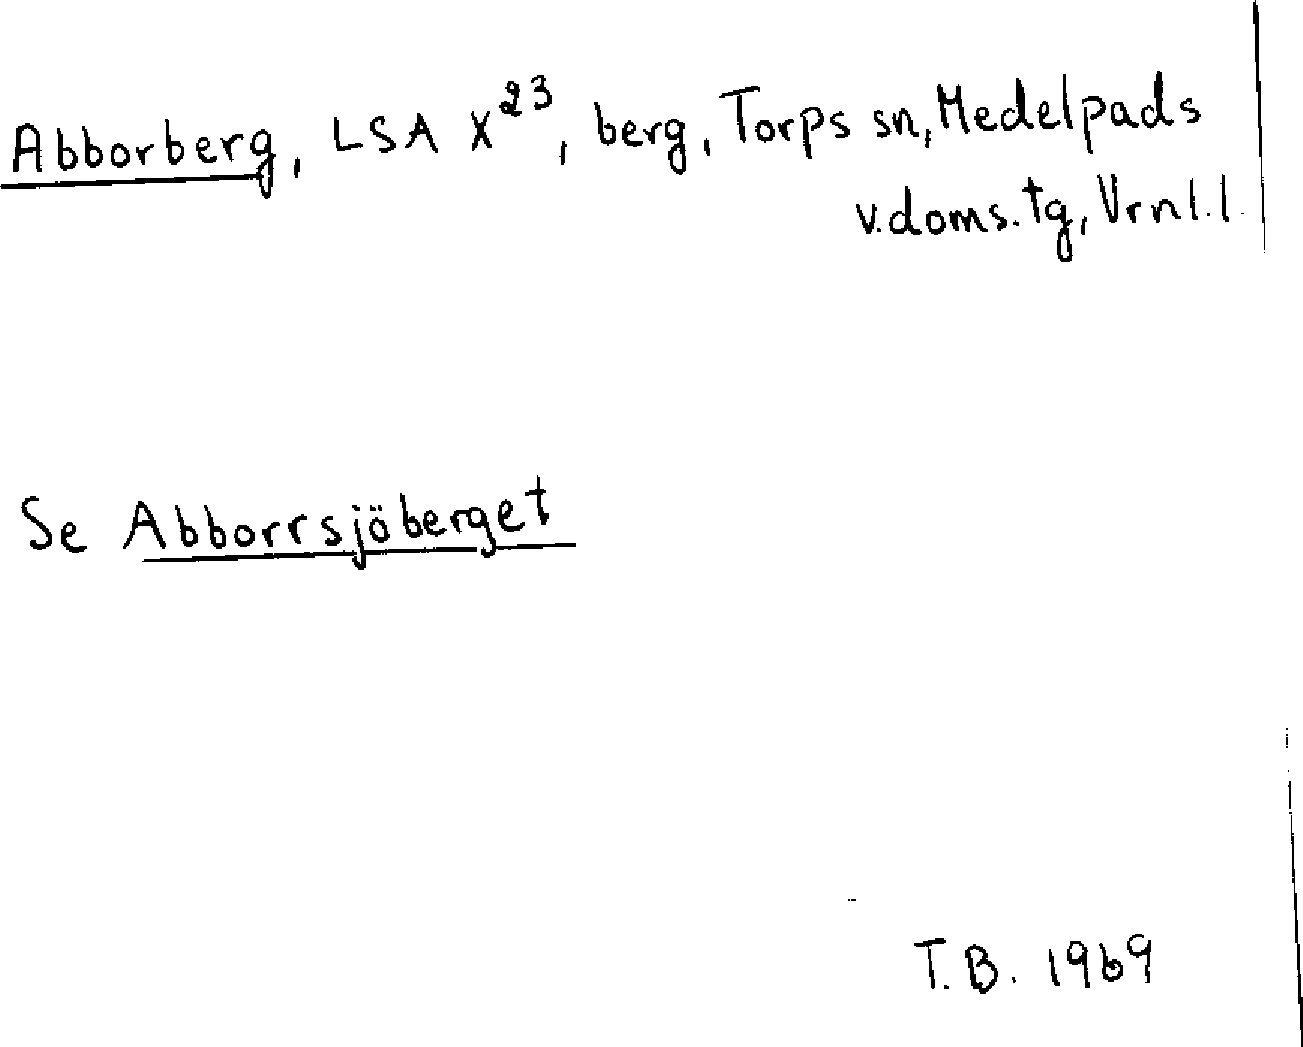 Abborberg, LSA X²³, berg, Torps sn, Medelpads
v.doms.tg, Vrnl.l.
Se Abborrsjöberget
T.B. 1969